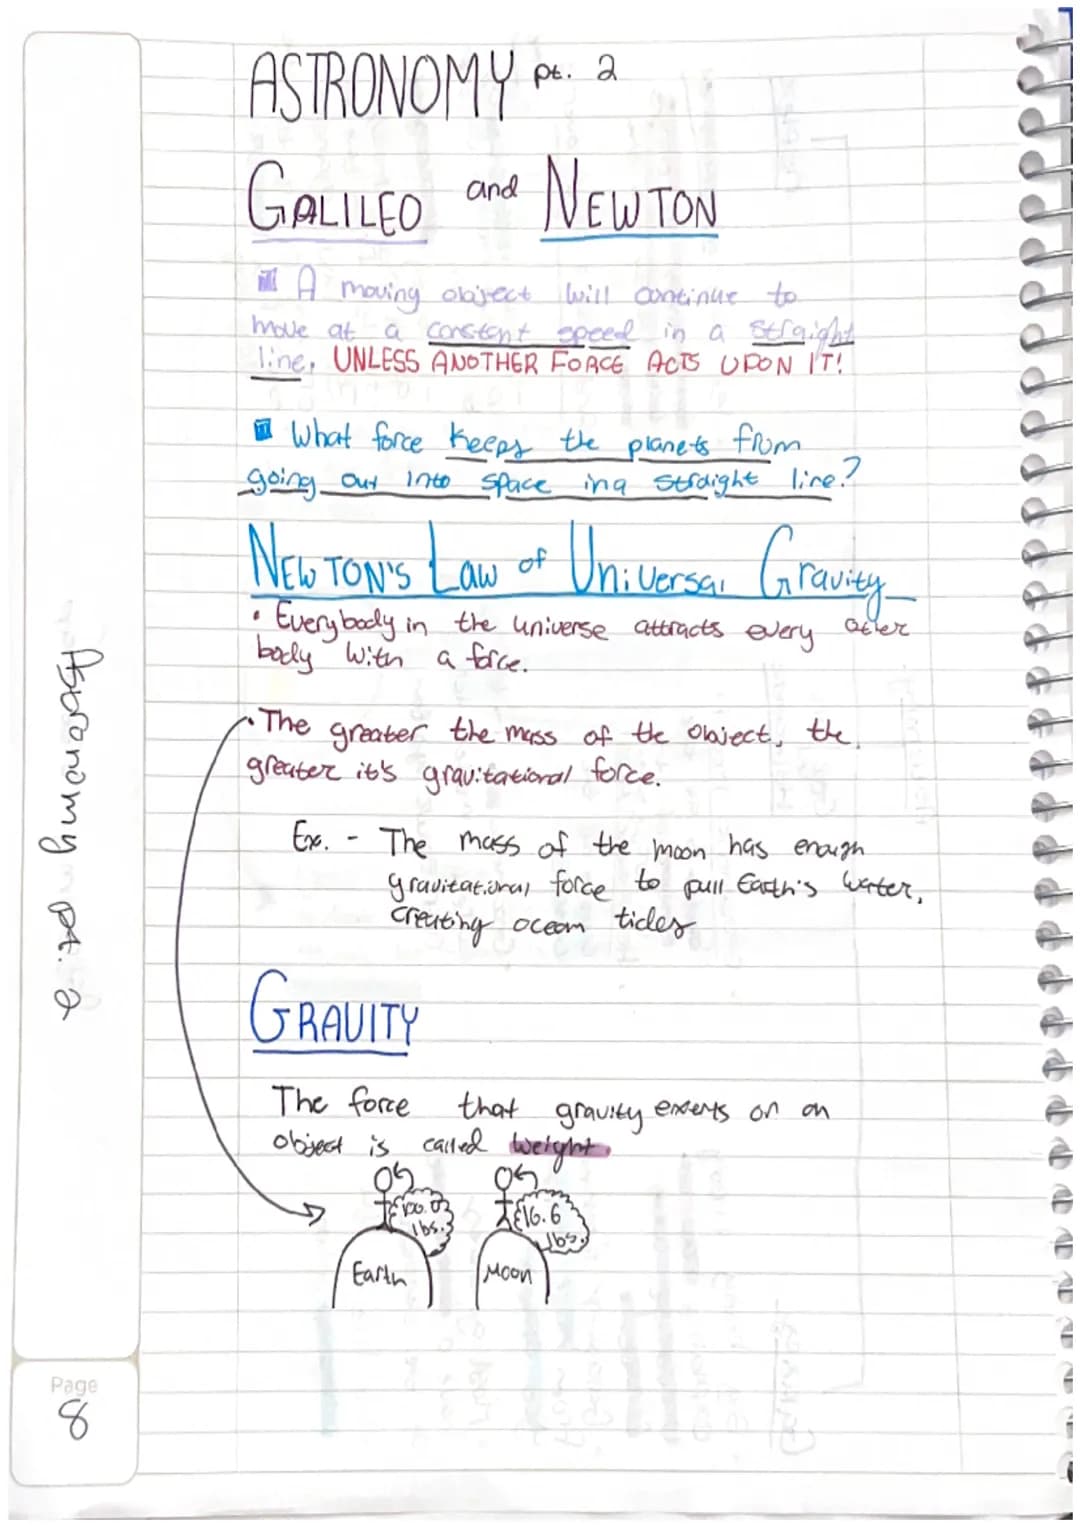 ASTRONOMY pt. 2
GALILEO and NEWTON
A moving object will continue to
move at a constant speed in a straight
line, UNLESS ANOTHER FORCE ACTS UPON IT!
What force keeps the planets from
going out into space in a straight line?
NEWTON'S Law of Universal Gravity
• Every body in the universe attracts every other
body with a force.
• The greater the mass of the object, the
greater it's gravitational force.
Ex. - The mass of the moon has enough
gravitational force to pull Earth's water,
creating ocean tides
GRAVITY
The force that gravity exerts on an
object is called weight.
100.0 lbs.
16.6 lbs.
Earth
Moon
Astronomy pt. 2
Page
8